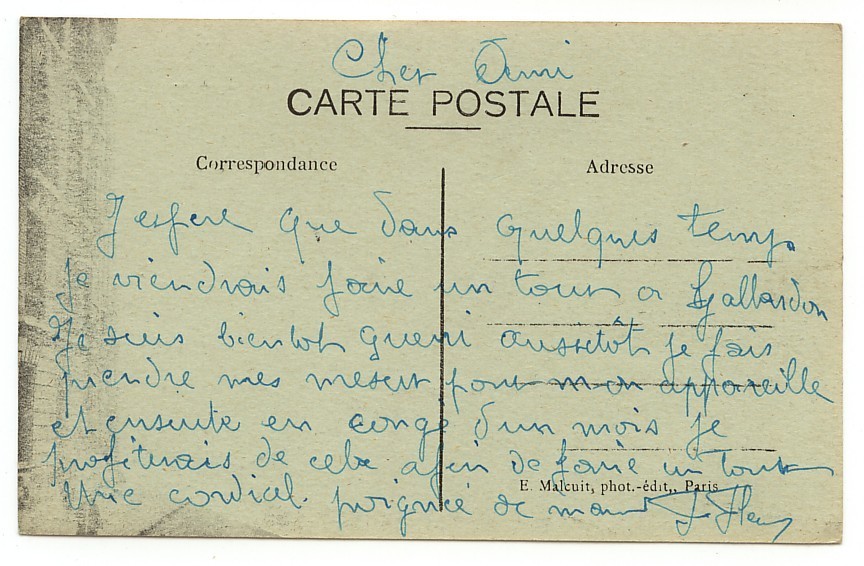 Cher Ami
CARTE POSTALE
Correspondance
Adresse
J'espere que dans quelques temps
je viendrais faire un tour a Gallardon
Je suis bientot gueri aussetôt je fais
prendre mes mesur pour mon appareille
et ensuite en congé d'un mois je
profiterais de cela afin de faire un tour
E. Malcuit, phot.-édit., Paris
Une cordial poignée de main